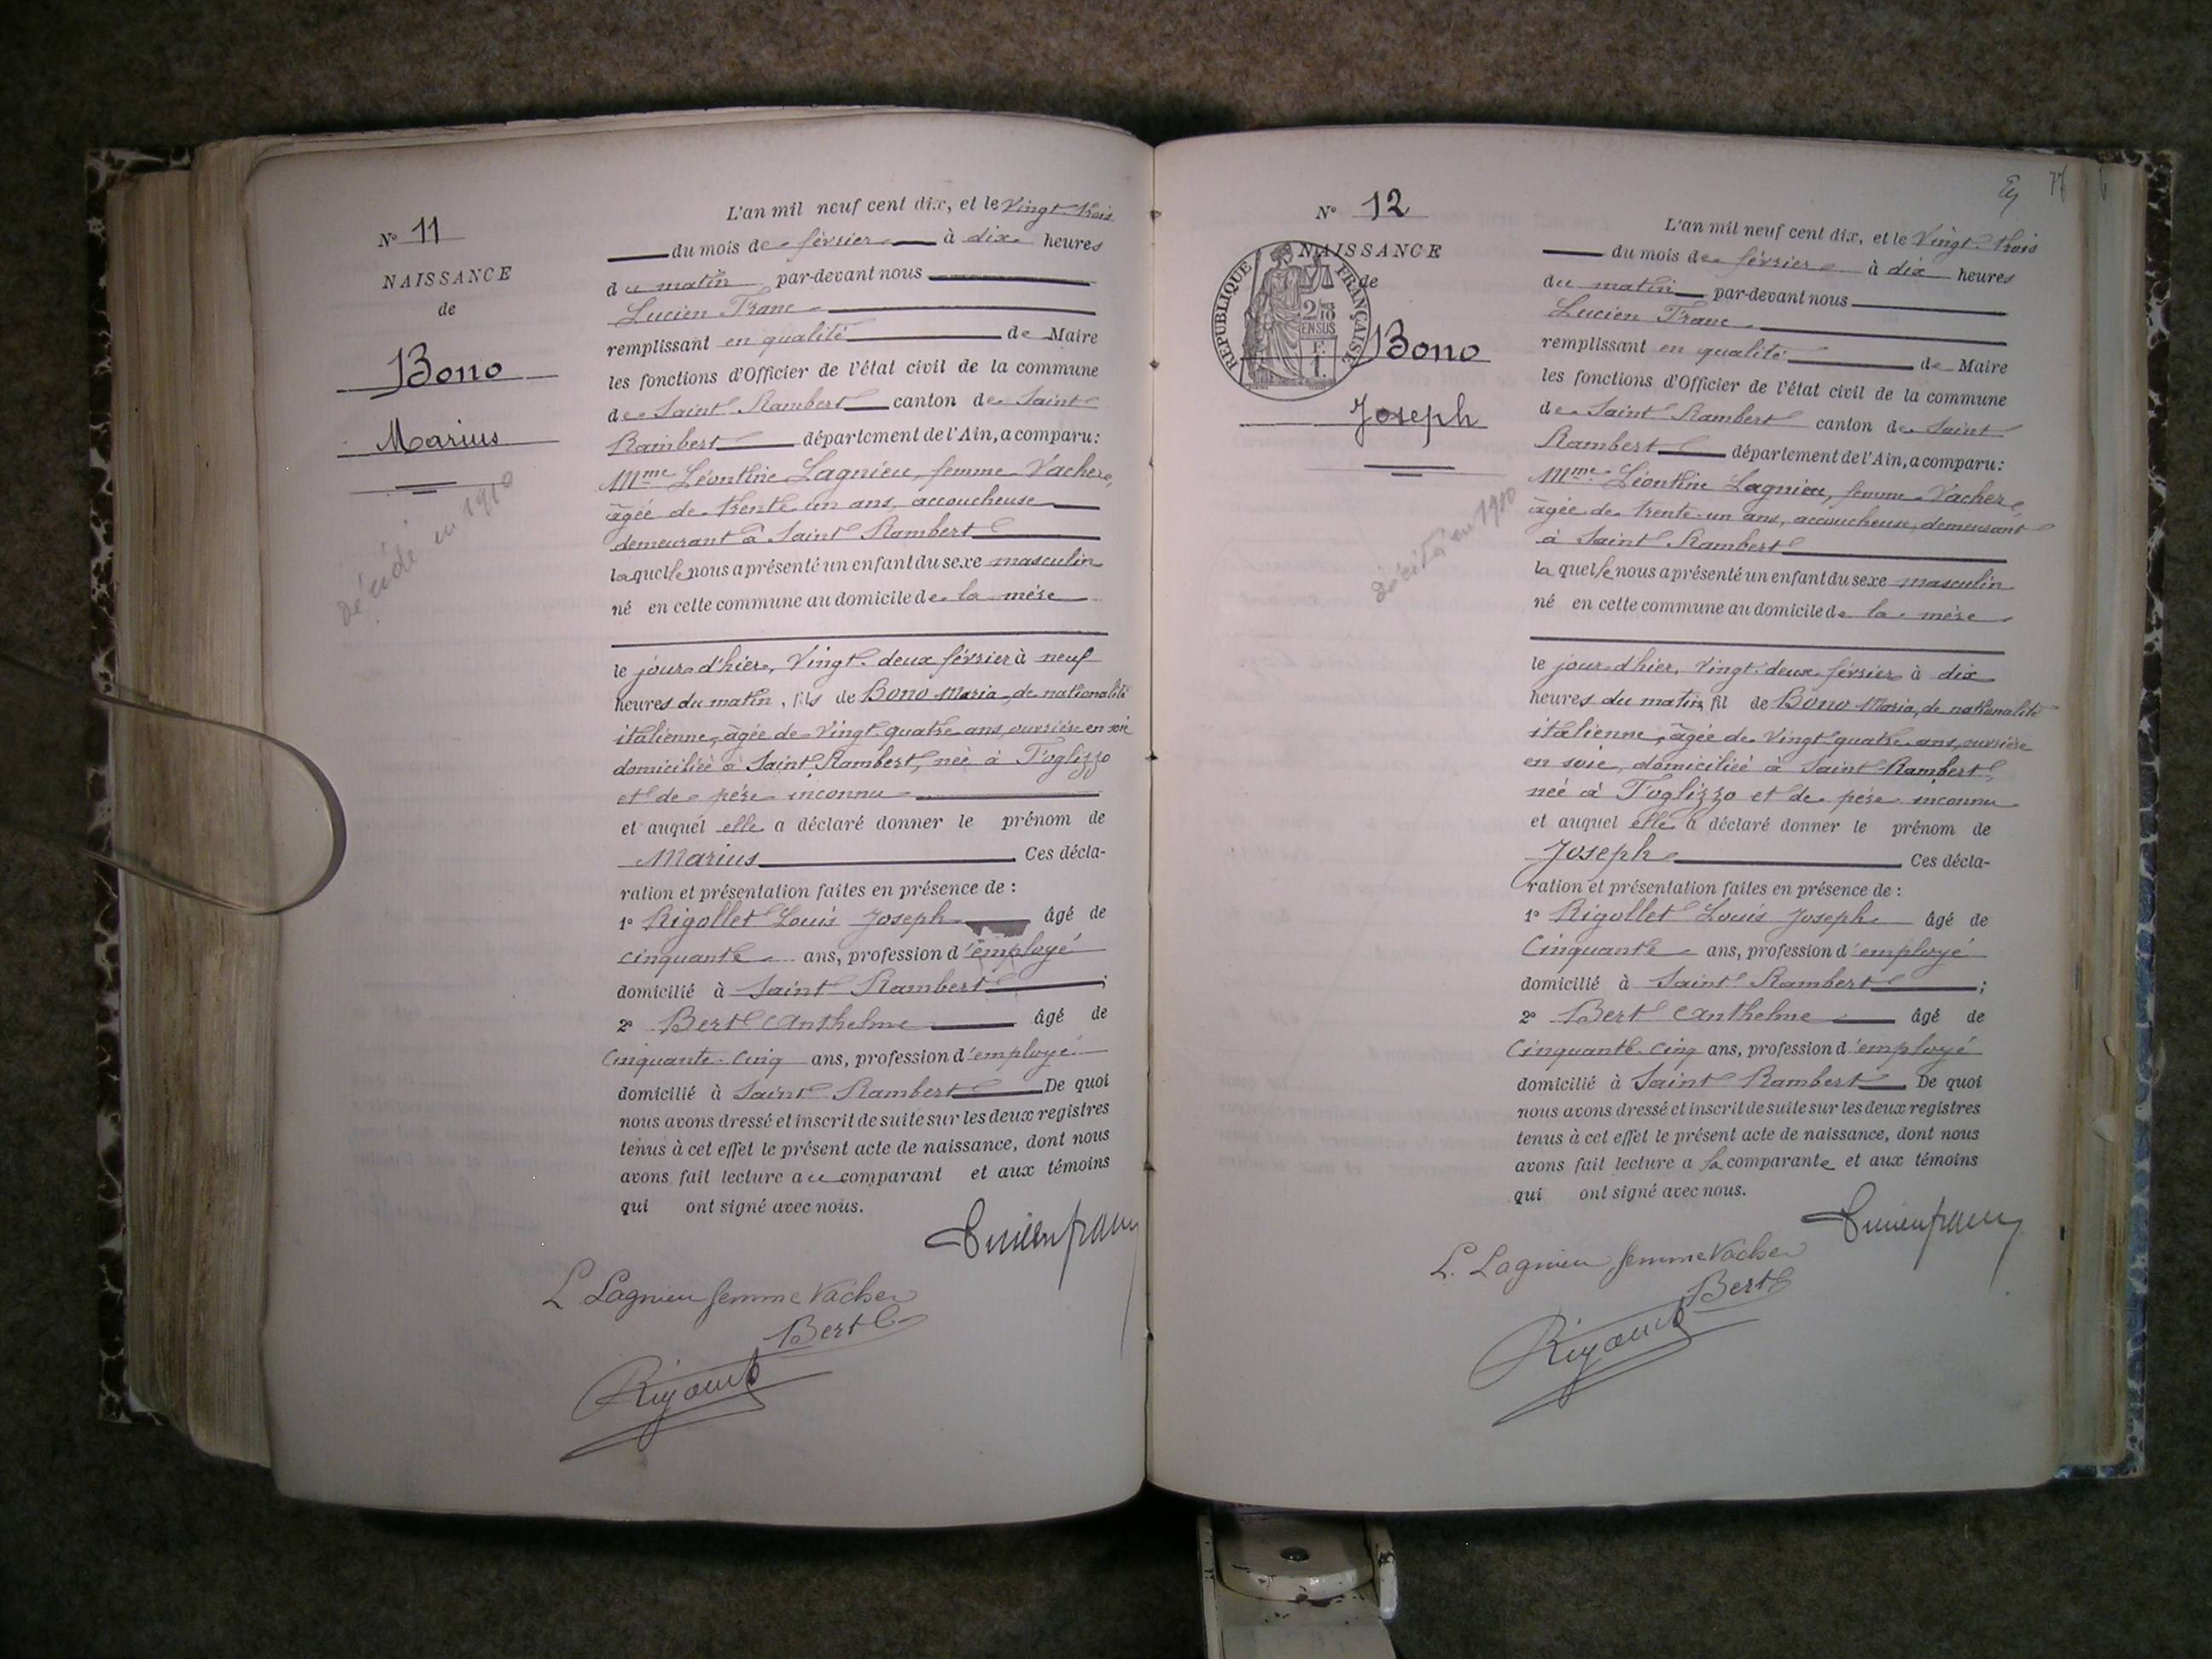 N° 11
NAISSANCE
de
Bono
Marius
décédé en 1910
L'an mil neuf cent dix, et le Vingt-trois
du mois de février à dix heures
du matin par-devant nous
Lucien Franc
remplissant en qualité de Maire
les fonctions d'Officier de l'état civil de la commune
de Saint Rambert canton de Saint
Rambert département de l'Ain, a comparu:
Mme Léontine Lagnieu, femme Vacher,
âgée de trente un ans, accoucheuse
demeurant à Saint Rambert
laquelle nous a présenté un enfant du sexe masculin
né en cette commune au domicile de la mère
le jour d'hier, Vingt-deux février à neuf
heures du matin, fils de Bono Maria, de nationalité
italienne, âgée de Vingt-quatre ans, ouvrière en soie
domiciliée à Saint Rambert, née à Foglizzo
et de père inconnu
et auquel elle a déclaré donner le prénom de
Marius Ces décla-
ration et présentation faites en présence de :
1° Rigollet Louis Joseph âgé de
cinquante ans, profession d'employé
domicilié à Saint Rambert ;
2° Bert Anthelme âgé de
Cinquante-cinq ans, profession d'employé
domicilié à Saint Rambert De quoi
nous avons dressé et inscrit de suite sur les deux registres
tenus à cet effet le présent acte de naissance, dont nous
avons fait lecture au comparant et aux témoins
qui ont signé avec nous.
Lucien franc
L Lagnieu femme Vacher
Bert
N° 12
NAISSANCE
de
RÉPUBLIQUE FRANÇAISE
2/10
EN SUS
F.
1.
Bono
Joseph
décédé en 1910
77
L'an mil neuf cent dix, et le Vingt-trois
du mois de février à dix heures
du matin par-devant nous
Lucien Franc
remplissant en qualité de Maire
les fonctions d'Officier de l'état civil de la commune
de Saint Rambert canton de Saint
Rambert département de l'Ain, a comparu:
Mme Léontine Lagnieu, femme Vacher,
âgée de trente-un ans, accoucheuse, demeurant
à Saint Rambert
la quelle nous a présenté un enfant du sexe masculin
né en cette commune au domicile de la mère
le jour d'hier, vingt-deux février à dix
heures du matin, fil de Bono Maria, de nationalité
italienne, âgée de Vingt-quatre ans, ouvrière
en soie, domiciliée à Saint-Rambert,
née à Foglizzo et de père inconnu
et auquel elle a déclaré donner le prénom de
Joseph Ces décla-
ration et présentation faites en présence de :
1° Rigollet Louis Joseph âgé de
Cinquante ans, profession d'employé
domicilié à Saint Rambert ;
2° Bert Anthelme âgé de
Cinquante-cinq ans, profession d'employé
domicilié à Saint Rambert De quoi
nous avons dressé et inscrit de suite sur les deux registres
tenus à cet effet le présent acte de naissance, dont nous
avons fait lecture a la comparante et aux témoins
qui ont signé avec nous.
Lucien franc
L. Lagnieu femme Vacher
Bert